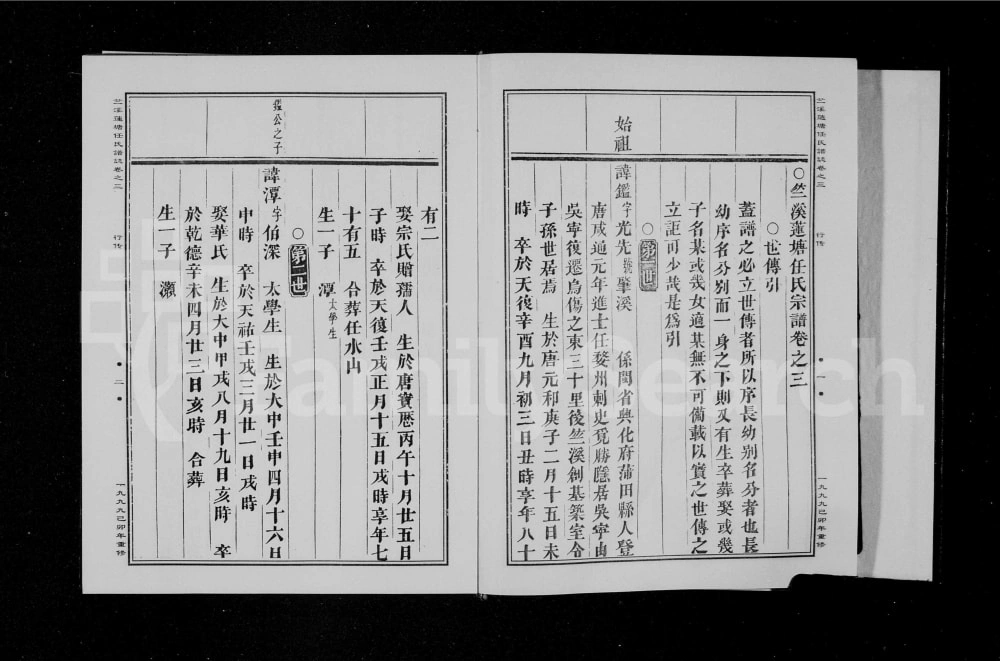 竺溪蓮塘任氏譜誌卷之三
行传
一
一九九九己卯年重修
○竺溪蓮塘任氏宗譜卷之三
○世傳引
蓋譜之必立世傳者所以序長幼别名分者也長
幼序名分别而一身之下則又有生卒葬娶或幾
子名某或幾女適某無不可備載以實之世傳之
立詎可少哉是為引
○第一世
始祖
諱鑑字光先號肇溪 係閩省興化府蒲田縣人登
唐咸通元年進士任婺州刺史覓勝隱居吳寧由
吳寧復遷烏傷之東三十里後竺溪創基築室令
子孫世居焉 生於唐元和庚子二月十五日未
時 卒於天復辛酉九月初三日丑時享年八十
有二
娶宗氏贈孺人 生於唐寶厯丙午十月廿五月
子時 卒於天復壬戌正月十五日戌時享年七
十有五 合葬任水山
生一子 潭太學生
○第二世
鑑公之子
諱潭字伯深 太學生 生於大中壬申四月十六日
中時 卒於天祐壬戌三月廿一日戌時
娶華氏 生於大中甲戌八月十九日亥時 卒
於乾德辛未四月廿三日亥時 合葬
生一子 灝
竺溪蓮塘任氏譜誌卷之三
行传
二
一九九九己卯年重修
FamilySearch